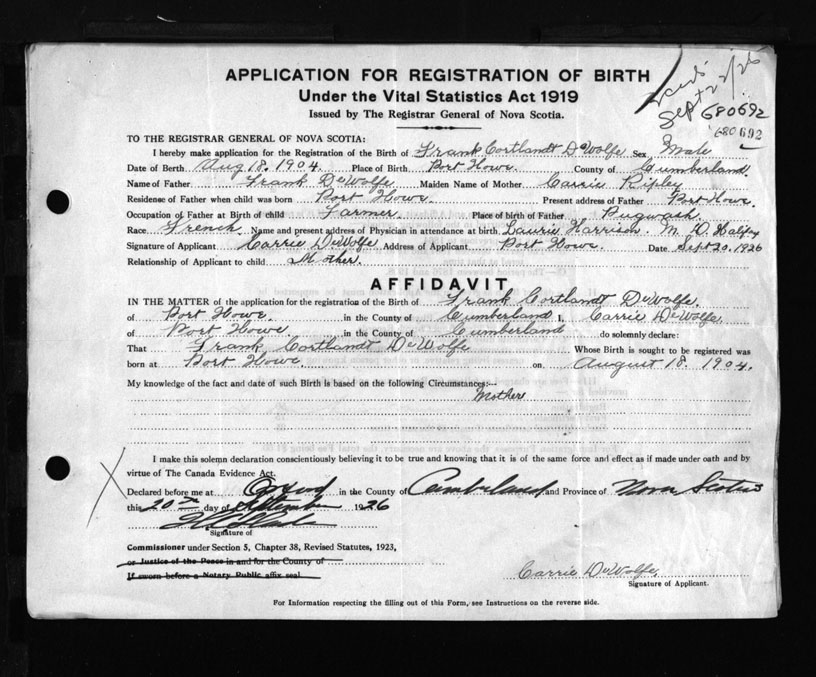 APPLICATION FOR REGISTRATION OF BIRTH
Under the Vital Statistics Act 1919
Issued by The Registrar General of Nova Scotia.
Sept 22/26
680692
680692
TO THE REGISTRAR GENERAL OF NOVA SCOTIA:
I hereby make application for the Registration of the Birth of Frank Cortlandt DeWolfe Sex Male
Date of Berth Aug 18, 1904. Place of Birth Port Howe. County of Cumberland.
Name of Father Frank DeWolfe Maiden Name of Mother Carrie Ripley
Residense of Father when child was born Port Howe. Present address of Father Port Howe.
Occupation of Father at Birth of child Farmer. Place of birth of Father Pugwash.
Race French Name and present address of Physician in attendance at birth Laurie Harrison. M. D. Halifax
Signature of Applicant Carrie DeWolfe Address of Applicant Port Howe. Date Sept 20, 1926
Relationship of Applicant to child Mother.
AFFIDAVIT
IN THE MATTER of the application for the registration of the Birth of Frank Cortlandt DeWolfe.
of Port Howe. in the County of Cumberland I, Carrie DeWolfe.
of Port Howe in the County of Cumberland do solemnly declare:
That Frank Cortlandt DeWolfe Whose Birth is sought to be registered was
born at Port Howe. on August 18. 1904.
My knowledge of the fact and date of such Birth is based on the following Circumstances:—
Mother
I make this solemn declaration conscientiously believing it to be true and knowing that it is of the same force and effect as if made under oath and by
virtue of The Canada Evidence Act.
Declared before me at Oxford in the County of Cumberland and Province of Nova Scotia
this 20th day of September 1926
Signature of
Commissioner under Section 5, Chapter 38, Revised Statutes, 1923,
or Justice of the Peace in and for the County of
If sworn before a Notary Public affix seal
Carrie DeWolfe
Signature of Applicant.
For Information respecting the filling out of this Form, see Instructions on the reverse side.